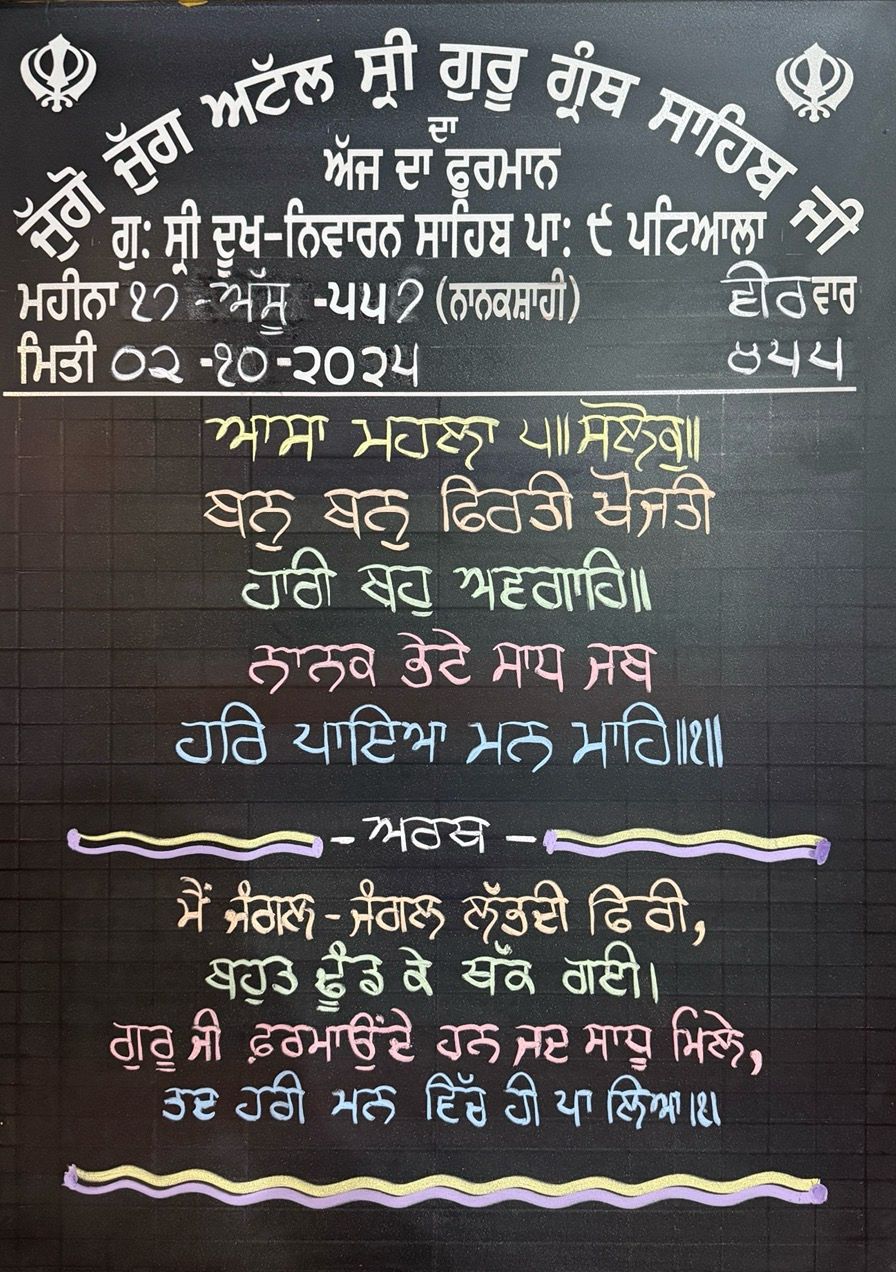 ਜੁੱਗੋ ਜੁੱਗ ਅਟੱਲ ਸ੍ਰੀ ਗੁਰੂ ਗ੍ਰੰਥ ਸਾਹਿਬ ਜੀ
ਦਾ
ਅੱਜ ਦਾ ਫੁਰਮਾਨ
ਗੁ: ਸ੍ਰੀ ਦੂਖ-ਨਿਵਾਰਨ ਸਾਹਿਬ ਪਾ: ੯ ਪਟਿਆਲਾ
ਮਹੀਨਾ ੧੭ -ਅੱਸੂ -੫੫੭ (ਨਾਨਕਸ਼ਾਹੀ) ਵੀਰਵਾਰ
ਮਿਤੀ ੦੨ -੧੦ -੨੦੨੫ ੪੫੫
ਆਸਾ ਮਹਲਾ ੫॥ ਸਲੋਕੁ॥
ਬਨੁ ਬਨੁ ਫਿਰਤੀ ਖੋਜਤੀ
ਹਾਰੀ ਬਹੁ ਅਵਗਾਹਿ॥
ਨਾਨਕ ਭੇਟੇ ਸਾਧ ਜਬ
ਹਰਿ ਪਾਇਆ ਮਨ ਮਾਹਿ॥੧॥
- ਅਰਥ -
ਮੈਂ ਜੰਗਲ-ਜੰਗਲ ਲੱਭਦੀ ਫਿਰੀ,
ਬਹੁਤ ਢੂੰਡ ਕੇ ਥੱਕ ਗਈ।
ਗੁਰੂ ਜੀ ਫ਼ਰਮਾਉਂਦੇ ਹਨ ਜਦ ਸਾਧੂ ਮਿਲੇ,
ਤਦ ਹਰੀ ਮਨ ਵਿੱਚ ਹੀ ਪਾ ਲਿਆ।੧।